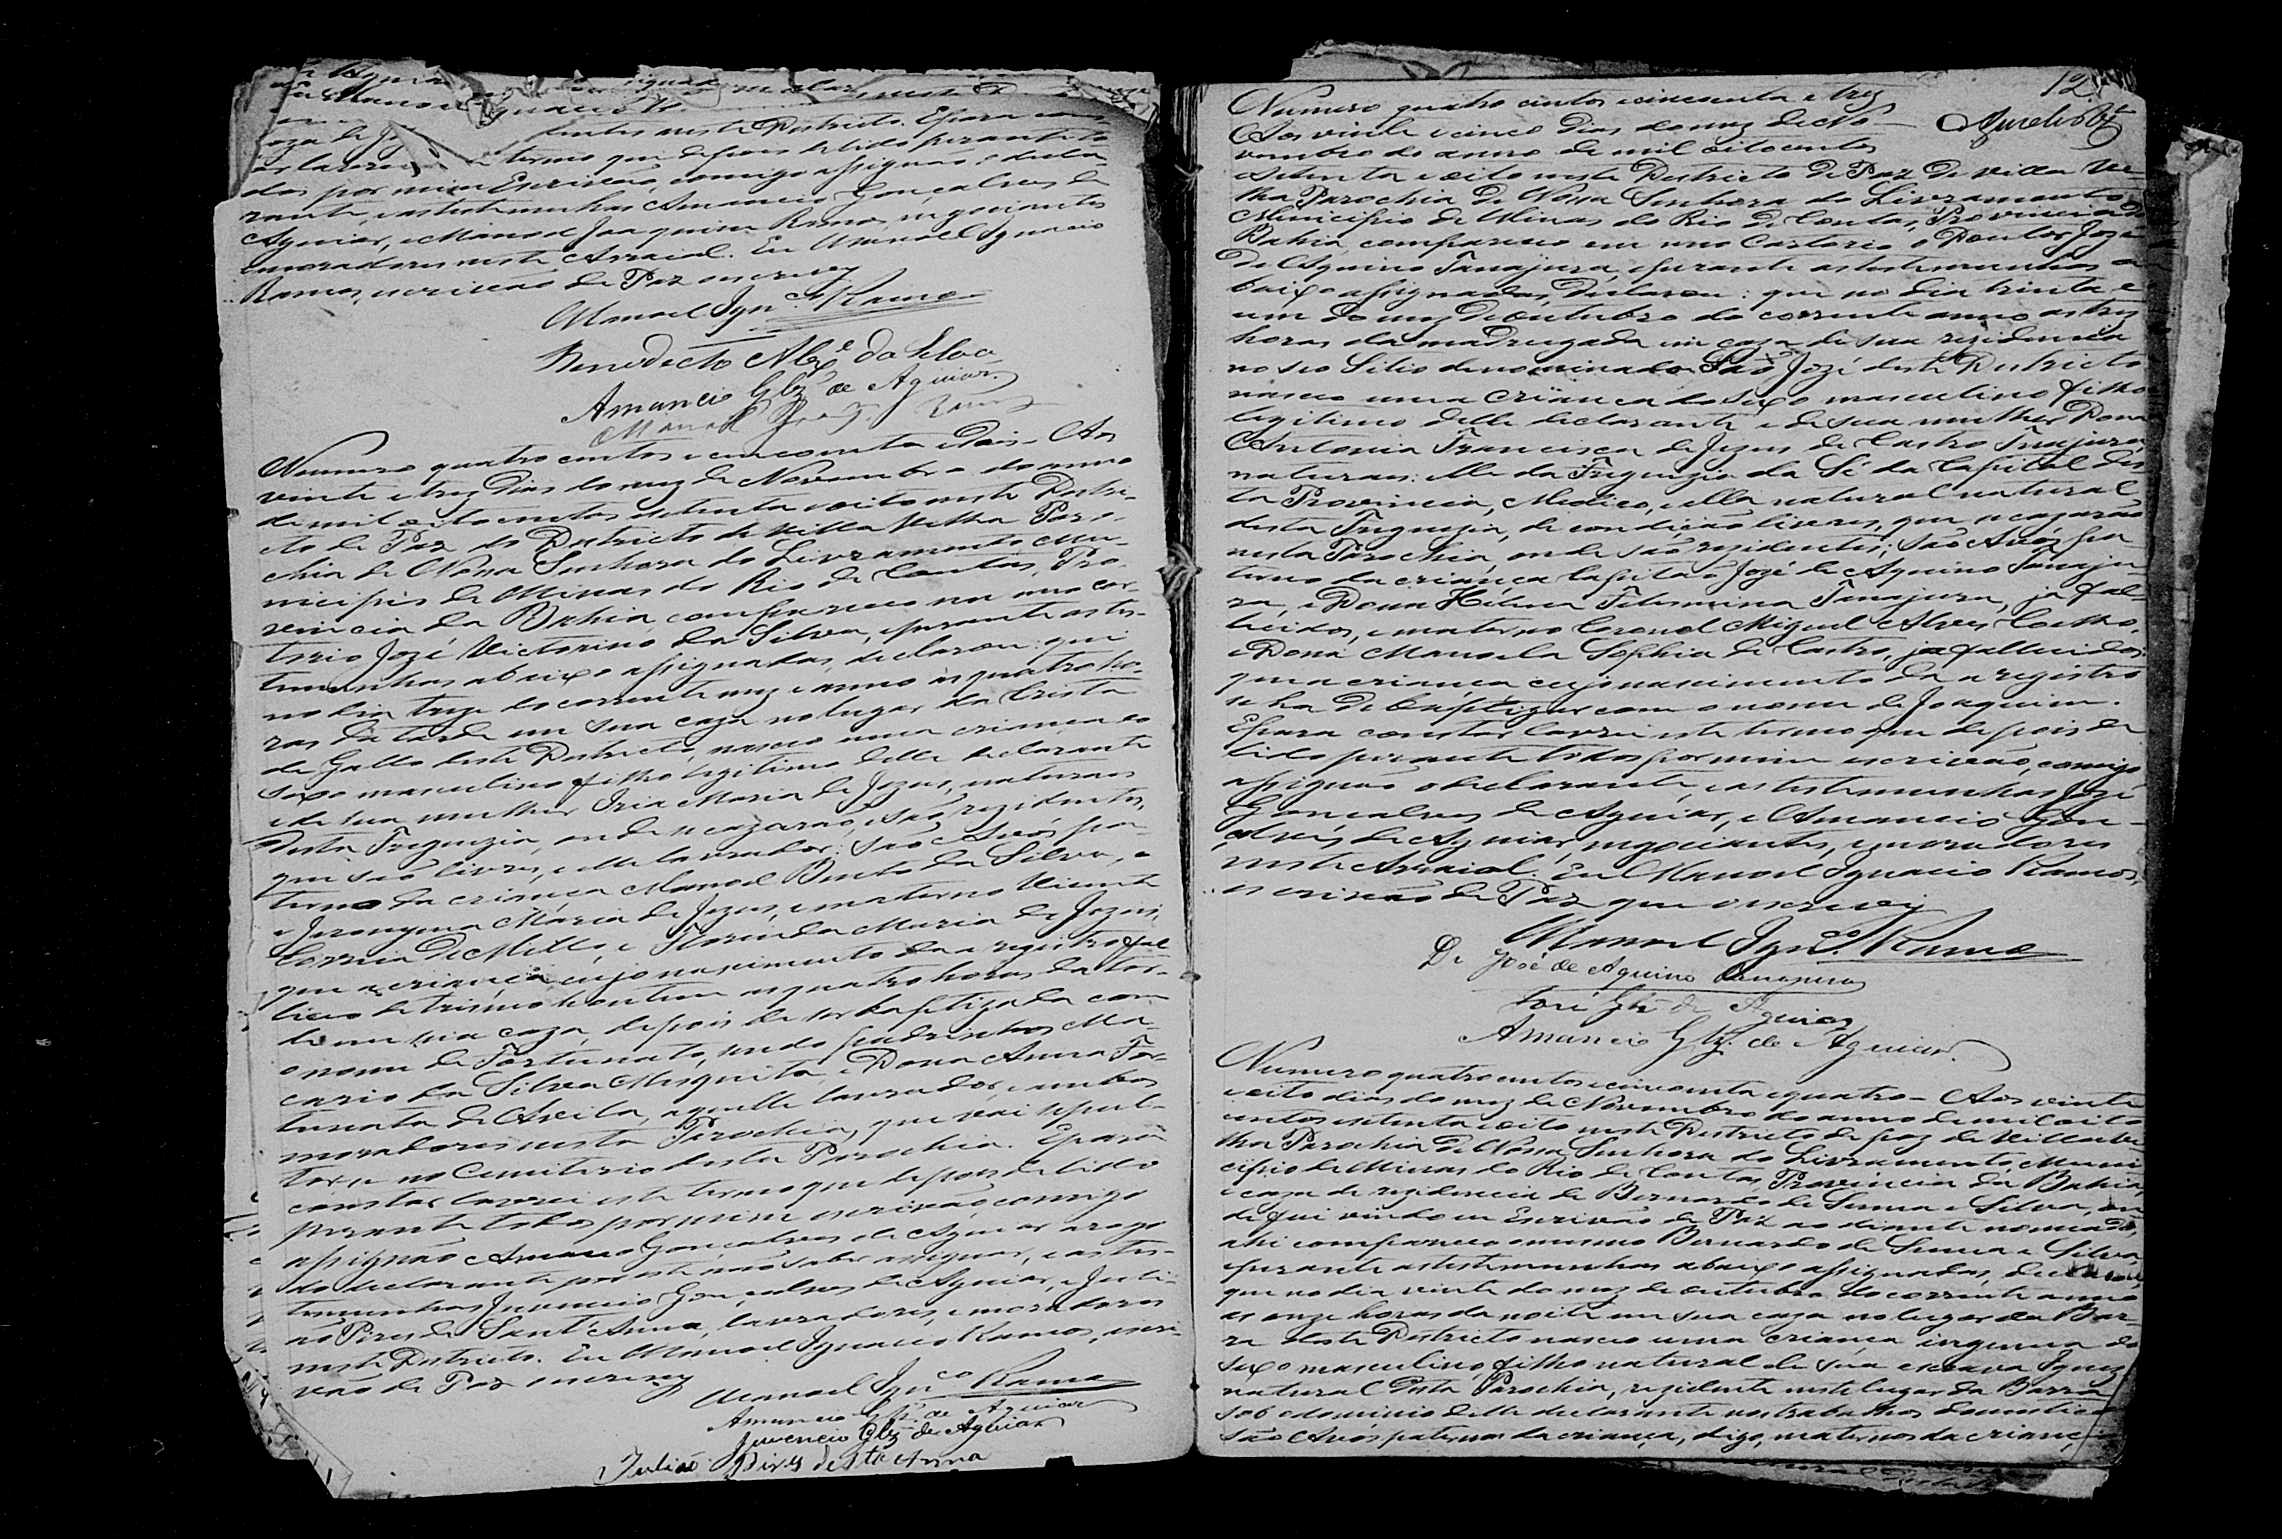 dentes neste Destricto. E para cons-
termo que depois de lido perante to
dos por mim Escrivão, comigo assignão o decla
rante, e as testemunhas Amancio Gonçalves de
Aguiar, e Manoel Joaquim Ramos, negociantes
e moradores neste Arraial. Eu Manoel Ignacio
Ramos, escrivão de Paz escrevy
Manoel Ign.co Ramos
Benedicto Alz.e da Silva
Amancio Glz' de Aguiar
Manoel Joaq. Ramos
Numero quatro centos e cincoenta e dois - Aos
vinte e trez dias do mez de Novembro do anno
de mil oito centos setenta e oito neste Destri-
cto de Paz do Destricto de Villa Velha Paro-
chia de Nossa Senhora do Livramento Mu-
nicipio de Minas do Rio de Contas, Pro-
vincia da Bahia compareceo em meo car-
torio José Victorino da Silva, e perante as tes-
temunhas abaixo assignadas, declarou: que
no dia treze do corrente mez e anno ás quatro ho-
ras da tarde em sua caza no lugar da Crista
do Gallo deste Destricto, nasceo uma criança do
sexo masculino filho legitimo delle declarante
e de sua mulher Iria Maria de Jezus, naturaes
desta Freguezia, onde se cazarão, e são rezidentes,
que são livres, e elle lavrador: são Avós pa-
terno da criança Manoel Bento da Silva, e
e Jeronyma Maria de Jezus, e materno Vicente
Correia de Mello, e Florinda Maria de Jezus,
que a criança cujo nascimento da a registro fal
leceo de trismo hontem as quatro horas da tar-
de em sua caza, depois de ser baptizada com
o nome de Fortunato, sendo padrinhos Ma-
cario da Silva Mesquita, e Dona Anna For-
tunata de Avila, aquelle lavrador, e ambos
moradores nesta Parochia, que vai sepul-
tar-se no Cemiterio desta Parochia. E para
constar lavrei este termo que depois de lido
perante todos por mim escrivão comigo
assignão Amancio Gonçalves de Aguiar a rogo
do declarante por este não saber assignar, e as tes-
temunhas Juvencio Gonçalves de Aguiar, e Juli-
ão Pires de Sant'Anna, lavradores, e moradores
neste Destricto. Eu Manoel Ignacio Ramos, escri-
vão de Paz escrevy
Manoel Ign.co Ramos
Amancio Glz. de Aguiar
Juvencio Glz de Aguiar
Julião Pires de Sta Anna
12
Numero quatro centos e cincoenta e trez
Aos vinte e cinco dias do mez de No-
vembro do anno de mil oitocentos
e setenta e oito neste Destricto de Paz de Villa Ve-
lha Parochia de Nossa Senhora do Livramento
Municipio de Minas do Rio de Contas, Provincia da
Bahia, compareceo em meo Cartorio o Doutor Joze
de Aquino Tanajura, e perante as testemunhas a-
baixo assignadas, declarou: que no dia trinta e
um do mez de outubro do corrente anno as trez
horas da madrugada em caza de sua rezidencia
no seo Sitio denominado São Jozé deste Destricto
nasceo uma criança do sexo masculino filho
legitimo delle declarante e de sua mulher Dona
Antonia Francisca de Jezus de Castro Tanajura,
naturaes: elle da Freguezia da Sé da Capital des
ta Provincia, Medico, e ella natural natural
desta Freguezia, de condição livres, que se cazarão
nesta Parochia, onde são rezidentes; são Avós pa-
terno da criança Capitão Jozé de Aquino Tanaju
ra, e Dona Helena Felesmina Tanajura, já fal
lecidos, e materno Coronel Miguel Alves Coelho,
e Dona Manoela Sophia de Castro, já fallecidos:
que a criança cujo nascimento da a registro
se ha de baptizar com o nome de Joaquim.
E para constar lavrei este termo que depois de
lido perante todos por mim escrivão, comigo
assignão o declarante, e as testemunhas Jozé
Gonçalves de Aguiar, e Amancio Gon-
çalves de Aguiar, negociantes, e moradores
neste Arraial. Eu Manoel Ignacio Ramos,
escrivão de Paz que o escrevy
Manoel Ign.co Ramos
Dr José de Aquino Tanajura
José Glz de Aguiar
Amancio Glz. de Aguiar.
Numero quatro centos e cincoenta e quatro - Aos vinte
e oito dias do mez de Novembro do anno de mil oito
centos setenta e oito neste Destricto de paz de Villa Ve
lha Parochia de Nossa Senhora do Livramento, Muni
cipio de Minas do Rio de Contas, Provincia da Bahia,
e caza de rezidencia de Bernardo de Senna e Silva, on
de fui vindo eu Escrivão de Paz ao diante nomeado,
ahi compareceo o mesmo Bernardo de Senna e Silva,
e perante as testemunhas abaixo assignadas, declarou
que no dia vinte do mez de outubro do corrente anno
as onze horas da noite em sua caza no lugar da Bar-
ra deste Destricto nasceo uma criança ingenua do
sexo masculino, filho natural de sua escrava Ignez
natural desta Parochia, rezidente neste lugar da Barra
sob o dominio delle declarante nos trabalhos domesticos
são Avós paternos da criança, digo, maternos da crianç